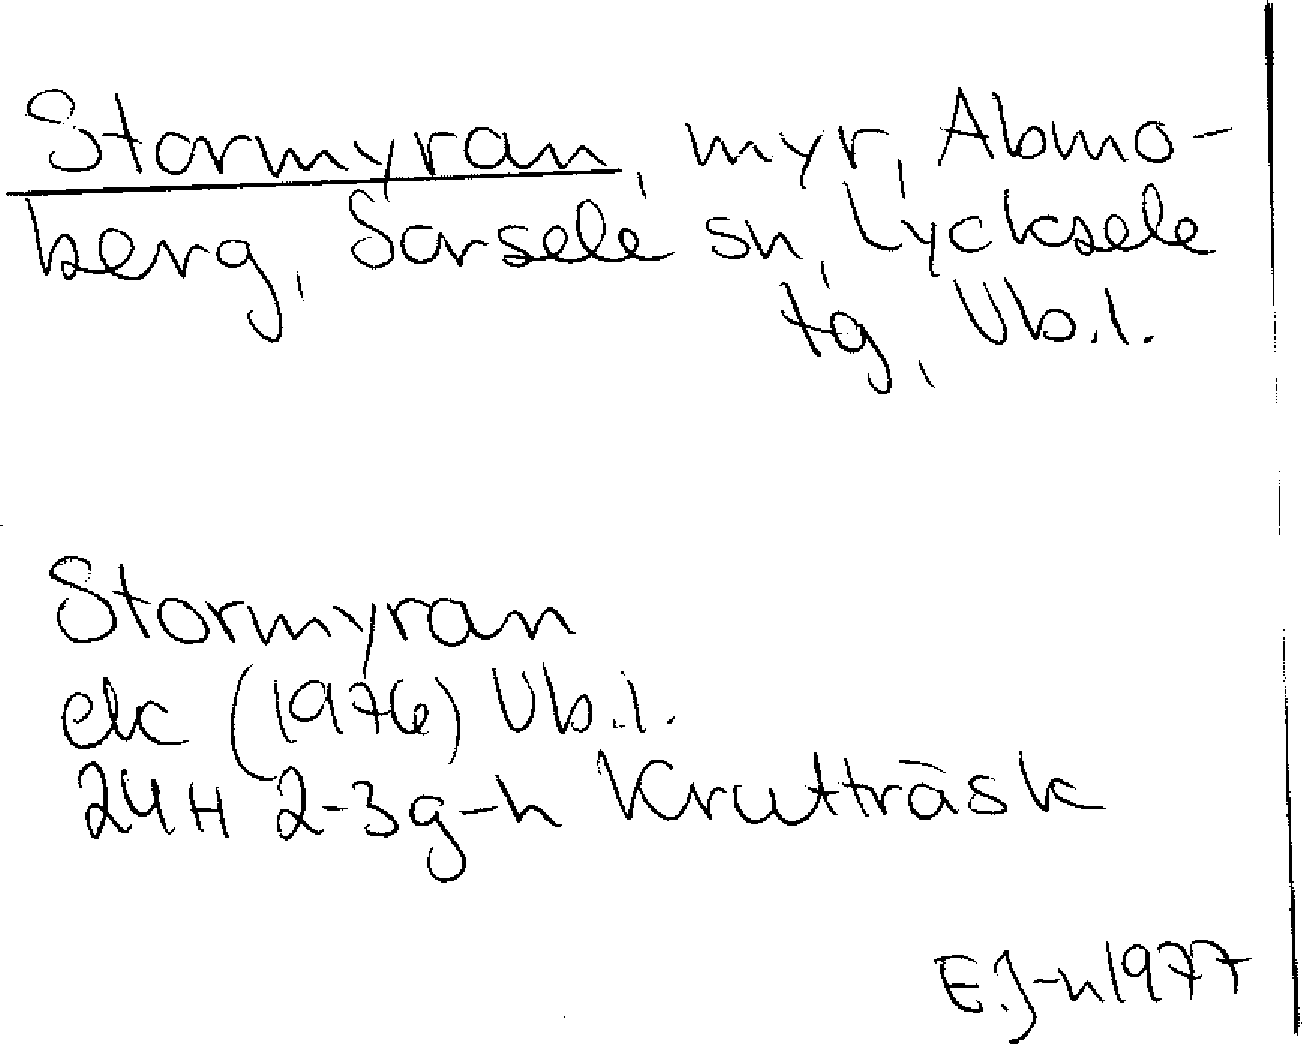 Stormyran, myr, Abmo-
berg, Sorsele sn, Lycksele
tg, Vb.l.
Stormyran
ek (1976) Vb.l.
24H 2-3g-h Krutträsk
E.J-n 1977